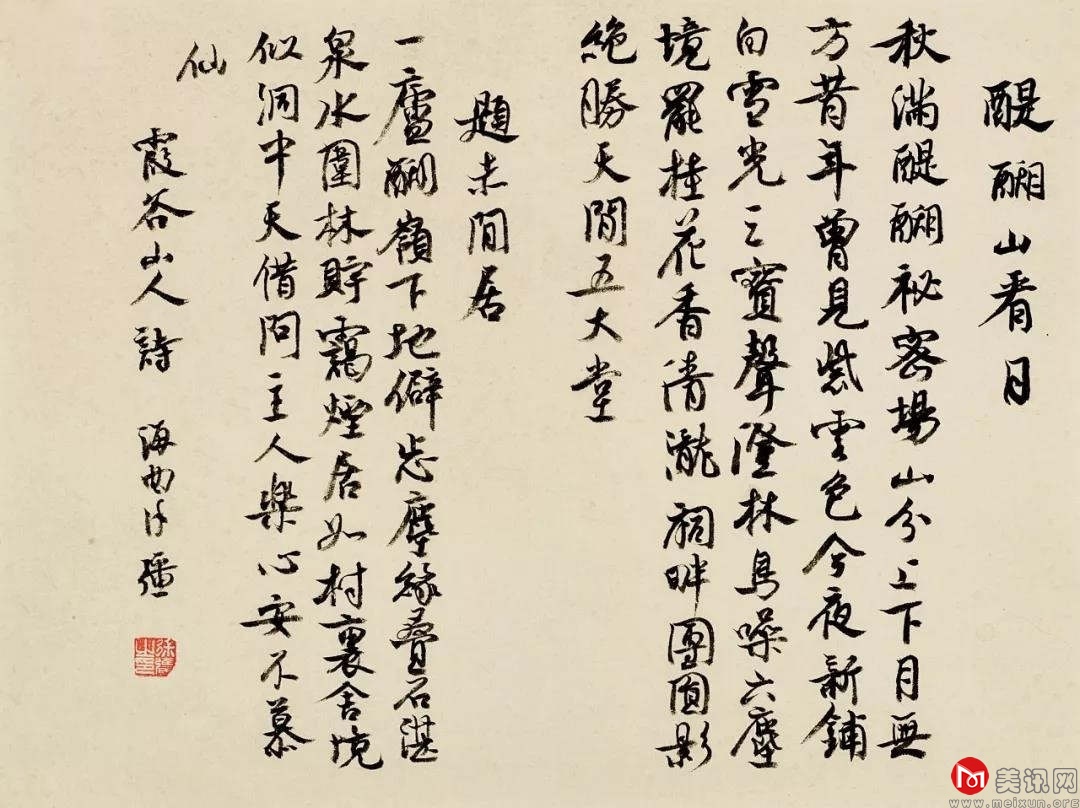 醍醐山看月
秋滿醍醐祕密場山分上下月無
方昔年曾見紫雲色今夜新鋪
白雪光三寶聲澄林鳥噪六塵
境罷桂花香清瀧祠畔團圓影
絕勝天閒五大堂
題未閒居
一廬醐嶺下地僻忘塵緣疊石湛
泉水圍林貯靄煙居如村裏舍境
似洞中天借問主人樂心安不慕
仙
霞谷山人詩 海曲徐彊
美讯网
www.meixun.org